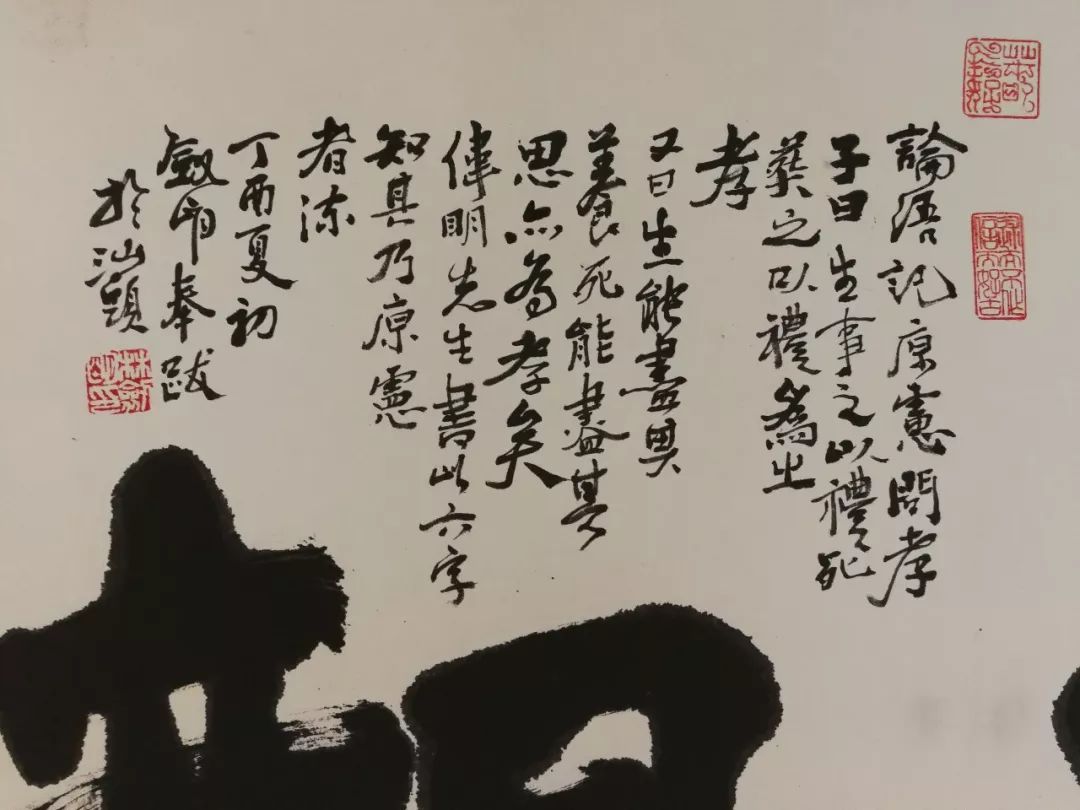 論語記原憲問孝
子曰生事之以禮死
葬之以禮為之
孝
又曰生能盡其
養死能盡其
思亦為孝矣
偉明先生書此六字
知其乃原憲
者流
丁酉夏初
劍丹奉跋
於汕頭